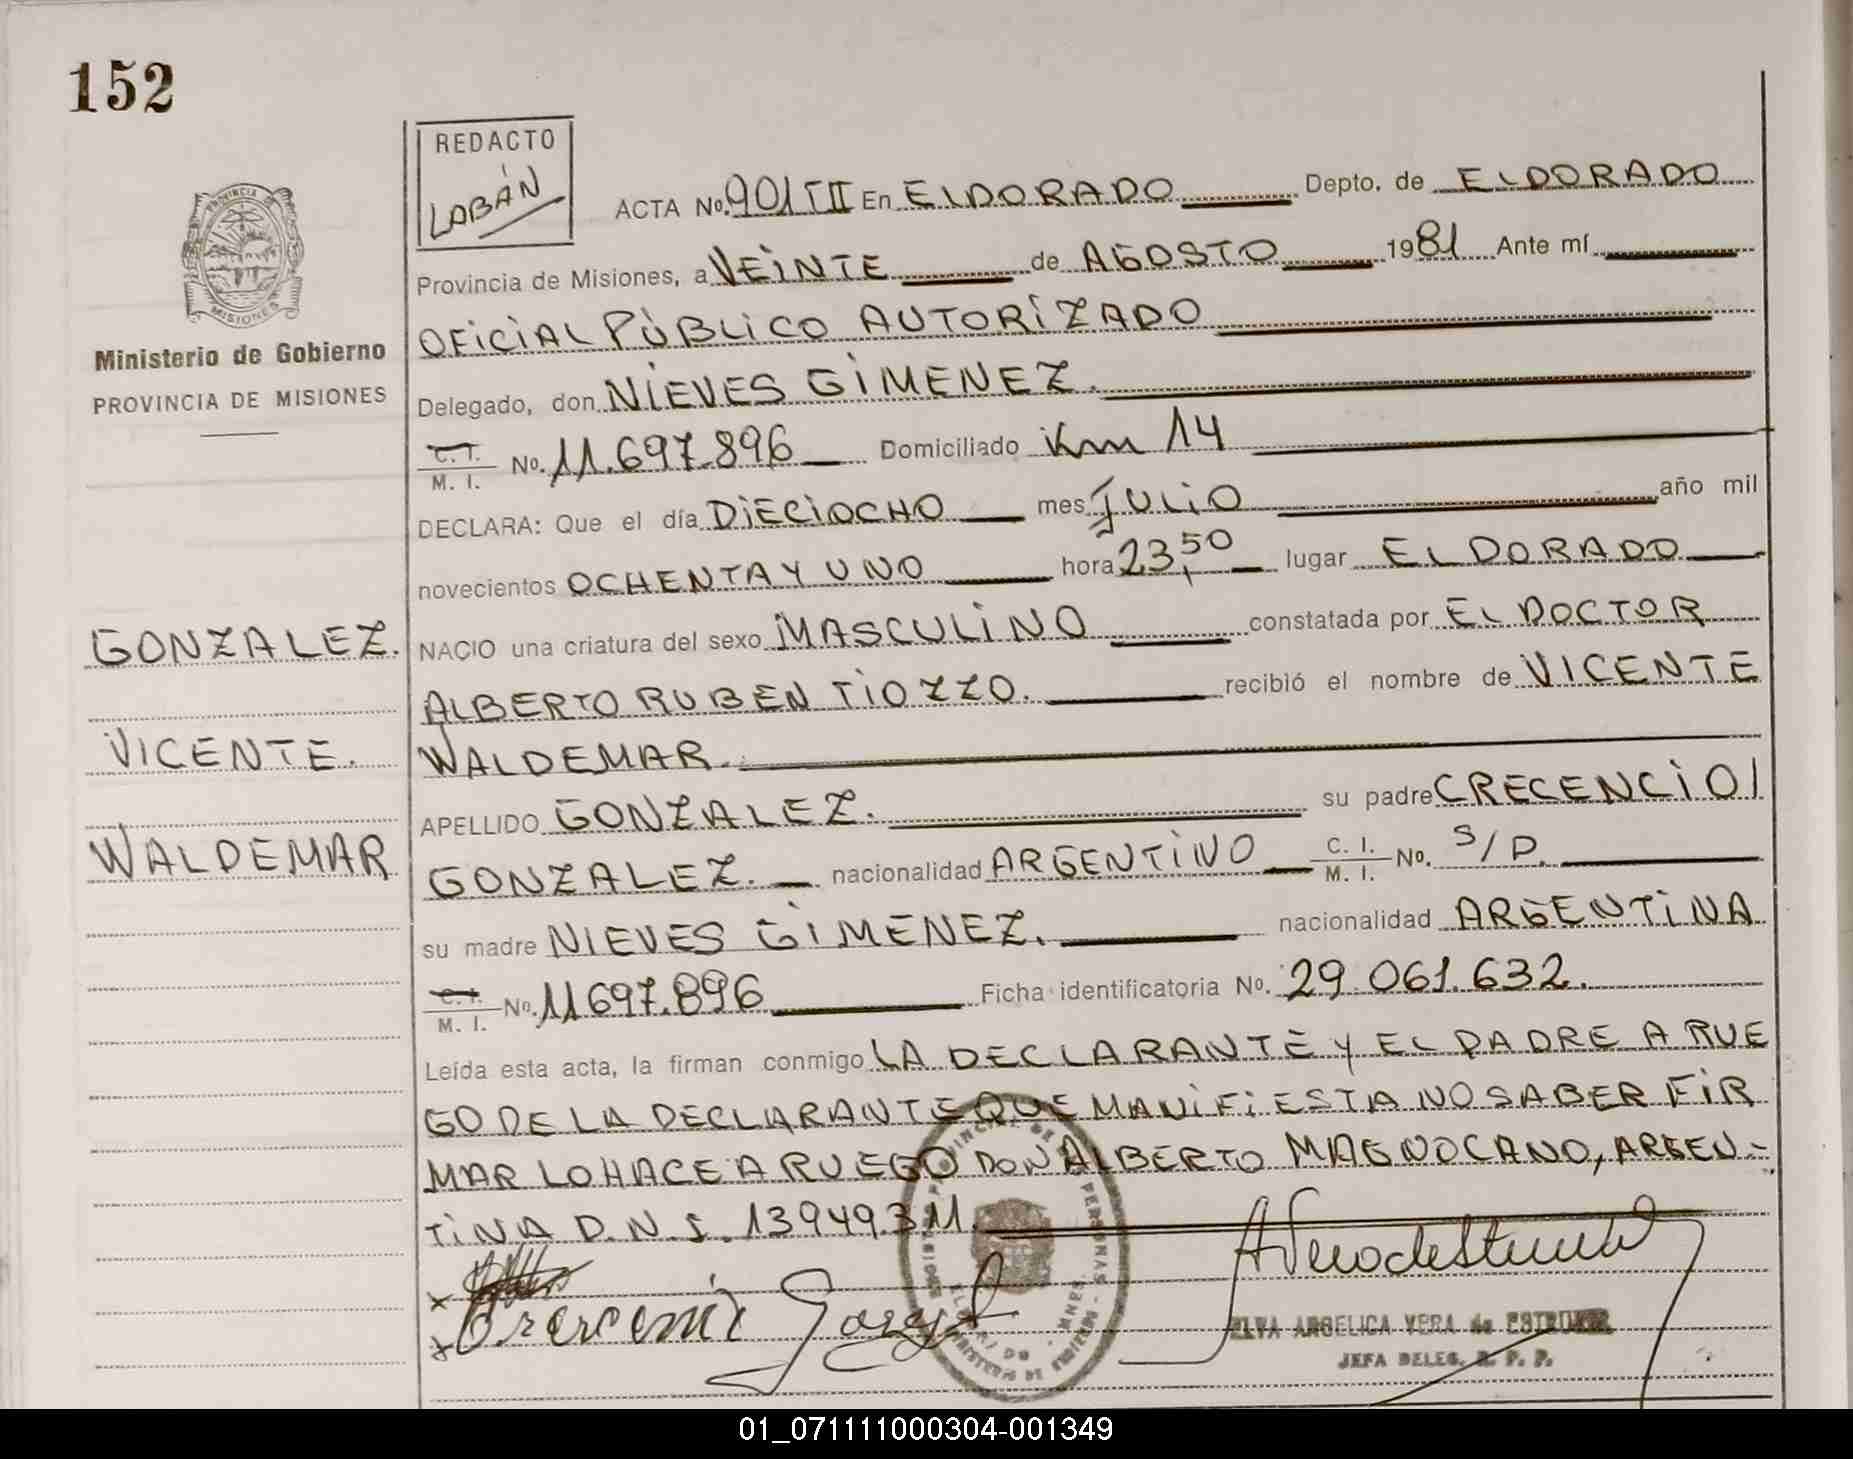 152
REDACTO
LABÁN
ACTA No. 901 TII En ELDORADO Depto. de ELDORADO
PROVINCIA DE
MISIONES
Provincia de Misiones, a VEINTE de AGOSTO 1981 Ante mí
OFICIAL PÙBLICO AUTORIZADO
Ministerio de Gobierno
PROVINCIA DE MISIONES
Delegado, don NIEVES GIMENEZ.
C.I. M. I. No. 11.697.896 Domiciliado Km 14
DECLARA: Que el día DIECIOCHO mes JULIO año mil
novecientos OCHENTA Y UNO hora 23,50 lugar ELDORADO
GONZALEZ.
NACIO una criatura del sexo MASCULINO constatada por EL DOCTOR
ALBERTO RUBEN TIOZZO. recibió el nombre de VICENTE
VICENTE.
WALDEMAR.
APELLIDO GONZALEZ. su padre CRECENCIO/
WALDEMAR
GONZALEZ. nacionalidad ARGENTINO C. I. M. I. No. S/D.
su madre NIEVES GIMENEZ. nacionalidad ARGENTINA
C.I. M. I. No. 11697.896 Ficha identificatoria No. 29.061.632.
Leída esta acta, la firman conmigo LA DECLARANTE Y EL PADRE A RUE
GO DE LA DECLARANTE QUE MANIFIESTA NO SABER FIR
MAR LO HACE A RUEGO DON ALBERTO MAGNO CANO, ARGEN-
TINA D.N.I. 13949.311.
ELVA ANGELICA VERA de
JEFA DELEG. R. P. P.
01_071111000304-001349